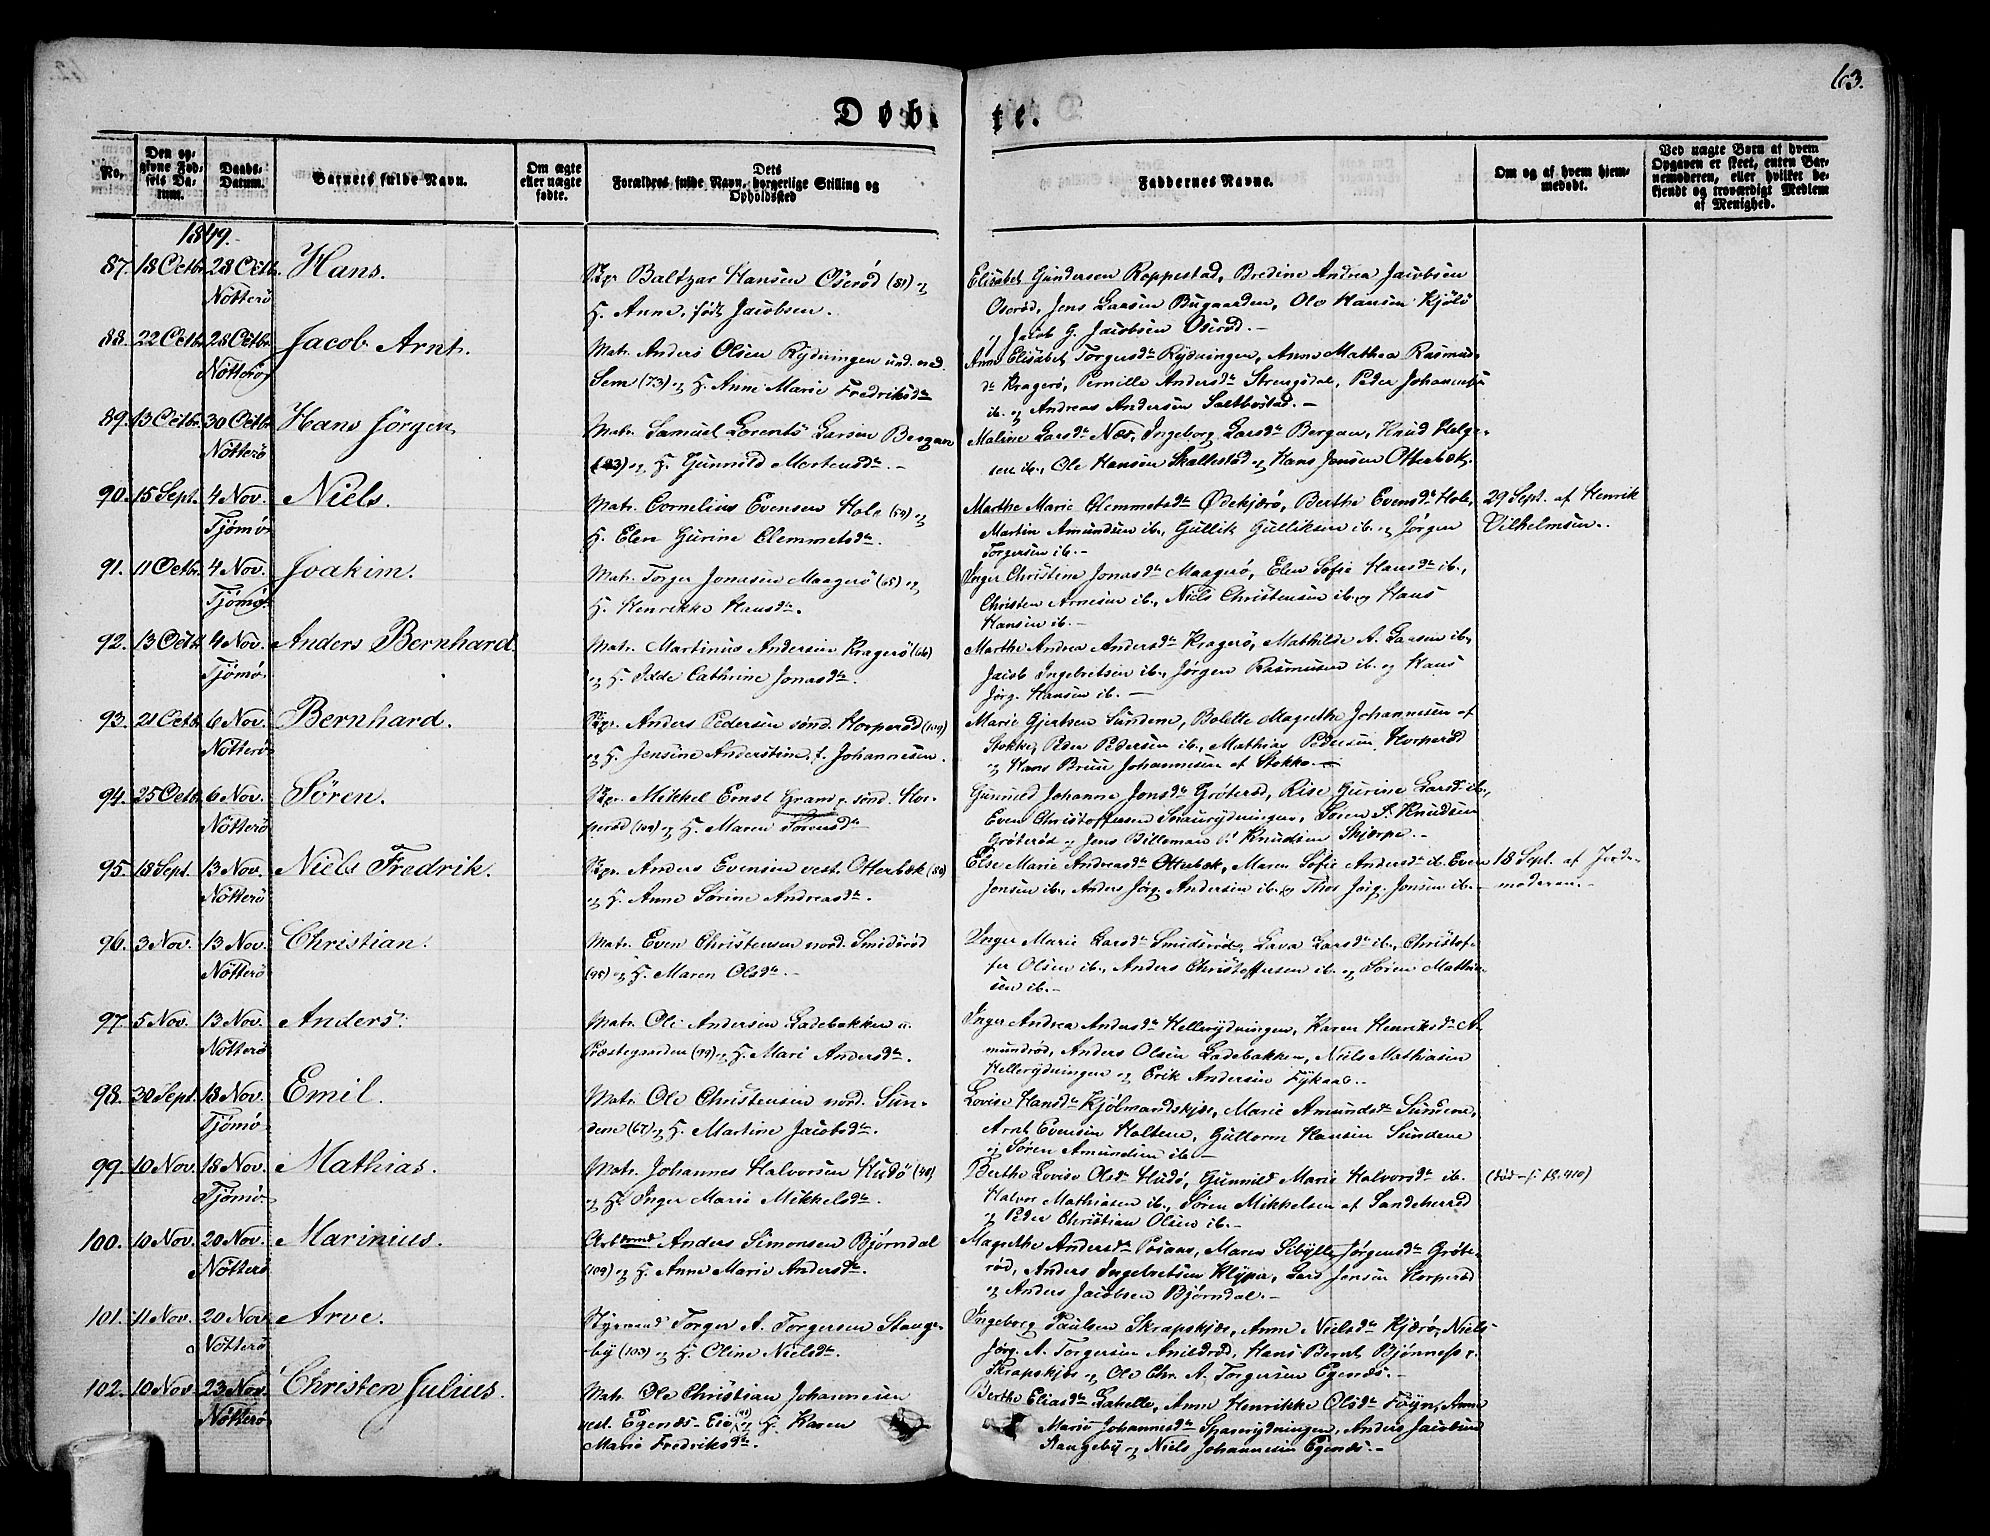 63.
Døbte.
No.
Den op-
givne Fød-
sels Da-
tum.
Daabs-
Datum.
Barnets fulde Navn.
Om ægte
eller uægte
fødte.
Dets
Forældres fulde Navn, borgerlige Stilling og
Opholdssted
Faddernes Navne.
Om og af hvem hjem-
medøbt.
Ved uægte Børn af hvem
Opgaven er skeet, enten Bar-
nemoderen, eller hvilket be-
kjendt og troværdigt Medlem
af Menighed.
1849.
87. 18 Octbr. 28 Octb. Hans.
Nötterö
Baltzar Hansen Oserød (81) og
H. Anne, födt Jacobsen.
Elisabet Gundersen Roppestad, Bredine Andrea Jacobsen
Oserød, Jens Larsen Bugaarden, Ole Hansen Kjölö
og Jacob G. Jacobsen Oserød.-
88. 22 Octbr. 28 Octbr. Jacob Arnt.
Nötterö
Matr. Anders Olsen Rydningen und. ned.
Sem (73) og H. Anne Marie Fredriksdtr
Anne Elisabet Torgersdtr Rydningen, Anne Mathea Rasmus-
dtr Kragerö, Pernille Andersdtr Strengsdal, Peder Johannesen
ib. og Andreas Andersen Saltbustad.-
89. 13 Octbr. 30 Octbr. Hans Jörgen
Nötterö
Matr. Samuel Lorents Larsen Bergan
(83) og H. Gunnild Mortensdtr.-
Maline Larsdtr Næs, Ingeborg Larsdtr Bergan, Knud Helge-
sen ib., Ole Hansen Skallestad og Hans Jensen Otterbæk.
90. 15 Sept. 4 Nov. Niels.
Tjømø
Matr. Cornelius Evensen Hole (59) og
H. Elen Gurine Clemmetsdtr.
Marthe Marie Clemmetsdtr Ødekjærö, Berthe Evensdtr Hole,
Martin Amundsen ib., Gullik Gulliksen ib. og Jörgen
Torgersen ib.-
29 Sept. af Henrik
Vilhelmsen.
91. 11 Octbr. 4 Nov. Joakim.
Tjømø
Matr. Torger Jonasen Maagerö (65) og
H. Henrikke Hansdtr.
Inger Christine Jonasdtr Maagerö, Elen Sofie Hansdtr ib.,
Christen Arnesen ib., Niels Christensen ib. og Hans
Hansen ib.-
92. 13 Octbr 4 Nov. Anders Bernhard
Tjømø
Matr. Martinus Andersen Kragerö (66)
og H. Cathrine Jonasdtr.
Marthe Andrea Andersdtr Kragerö, Mathilde A. Larsen ib.,
Jacob Ingebretsen ib., Jörgen Rasmusen ib. og Hans
Jörg. Hansen ib.-
93. 21 Octbr 6 Nov. Bernhard.
Nötterö
Anders Pedersen sönd. Horperød (104)
og H. Jensine Anderstine, f. Johannesen.
Marie Gjertsen Sundene, Bolette Magrethe Johannesen af
Stokke, Peder Pedersen ib., Mathias Pedersen Horperød
og Hans Bruu Johannesen af Stokke.-
94. 25 Octbr 6 Nov. Sören.
Nötterö
Mikkel Ernst Gram sönd. Hor-
perød (104) og H. Maren Sörensdtr
Gunnild Johanne Jonsdtr Gröteröd, Rise Gurine Larsdtr ib.,
Even Christoffersen Snaurydningen, Sören S. Knudsen
Gröteröd og Jens Billeman Knudsen Skjerpe.-
95. 18 Sept. 13 Nov. Niels Fredrik.
Nötterö
Anders Evensen vest. Otterbæk (80)
og H. Anne Sörine Andreasdtr.
Else Marie Andreasdtr Otterbæk, Maren Sofie Andersdtr ib. Even
Jonsen ib., Anders Jörg. Andersen ib. og Thor Jörg. Jonsen ib.-
18 Sept. af Jorde-
moderen.-
96. 3 Nov. 13 Nov. Christian.
Nötterö
Matr. Even Christensen nord. Smidsröd
(95) og H. Maren Olsdtr.-
Inger Marie Larsdtr Smidsröd, Lava Larsdtr ib., Christof-
fer Olsen ib., Anders Christoffersen ib. og Sören Mathia-
sen ib.-
97. 5 Nov. 13 Nov. Anders.
Nötterö
Matr. Ole Andersen Ladebakken u.
Præstegaarden (79) og H. Mari Andersdtr.
Inger Andrea Andersdtr Hellerydningen, Karen Henriksdtr A-
mundröd, Anders Olsen Ladebakken, Niels Mathiasen
Hellerydningen og Erik Andersen Fykaas.-
98. 30 Sept. 18 Nov. Emil.
Tjømø
Matr. Ole Christensen nord. Sun-
dene (67) og H. Martine Jacobsdtr.
Lovise Hansdtr Kjölmandskjær, Marie Amundsdtr Sundene,
Arnt Evensen Holtene, Guttorm Hansen Sundene
og Sören Amundsen ib.-
99. 10 Nov. 18 Nov. Mathias.
Tjømø
Matr. Johannes Halvorsen Hudö (40)
og H. Inger Marie Mikkelsdtr.
Berthe Lovise Olsdtr Hudö, Gunnild Marie Halvorsdtr ib.
Halvor Mathiasen ib., Sören Mikkelsen af Sandeherred
og Peder Christian Olsen ib.-
100. 10 Nov. 20 Nov. Marinius.
Nötterö
Arbdsmd Anders Simonsen Bjørndal
(109) og H. Anne Marie Andersdtr.
Magrethe Andersdtr, Maren Sibylle Jörgensdtr Gröte-
röd, Anders Ingebretsen Klyper, Lars Jensen Horperød
og Anders Jacobsen Bjørndal.-
101. 11 Nov. 20 Nov. Arve.
Nötterö
Styrmand Torger A. Torgersen Stange-
by (103) og H. Oline Nielsdtr.
Ingeborg Paulsen Skrapskjær, Anne Nielsdtr Kjærö, Niels
Jörg. A. Torgersen Anildröd, Hans Bernt Bjønness
Skrapskjær og Ole Chr. A. Torgersen Egenæs.-
102. 10 Nov 23 Nov. Christen Julius.
Nötterö
Matr. Ole Christian Johannesen
vest. Egenæs-Eie og H. Karen
Marie Fredriksdtr.
Berthe Eliasdtr Gahelle, Anne Henrikke Olsdtr Föyn, Anne
Marie Johannesdtr Spaserydningen, Anders Jacobsen
Stangeby og Niels Johannesen Egenæs.-